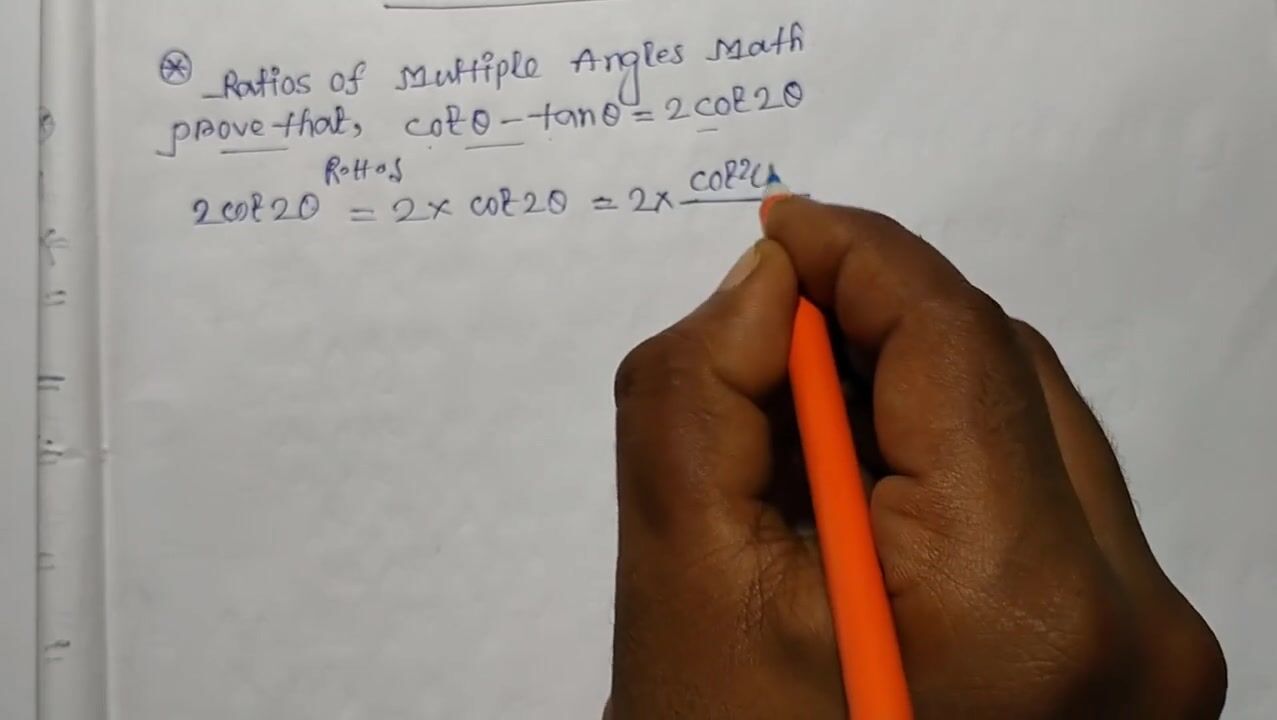 ⊛ Ratios of Multiple Angles Math
prove that, cotθ - tanθ = 2cot2θ
2cot2θ = 2× cot2θ = 2× cot²